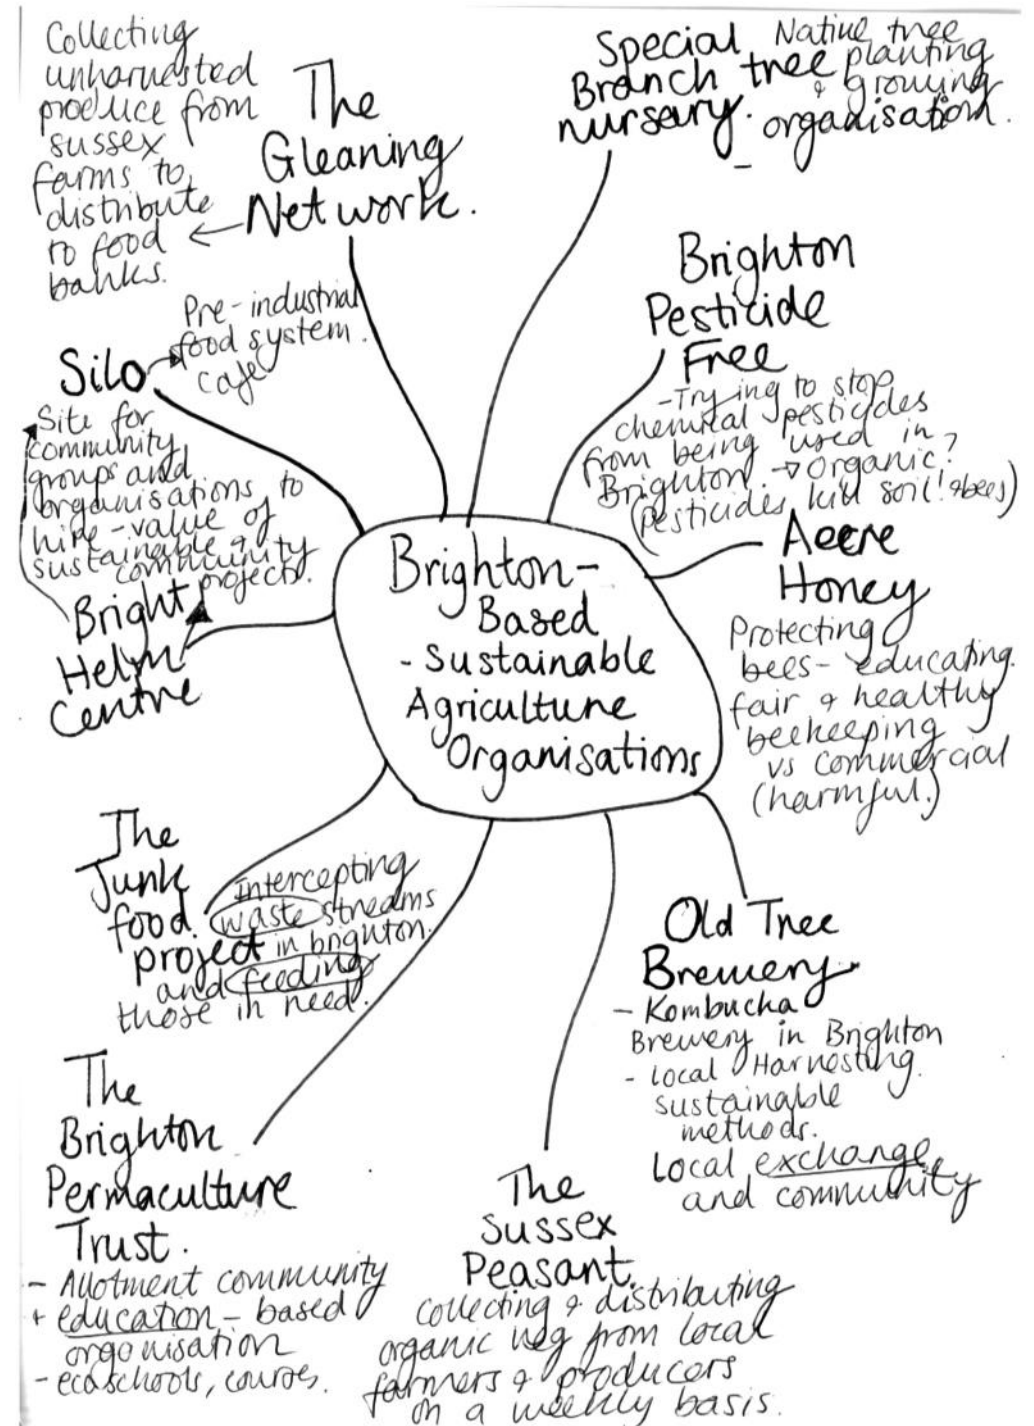 Brighton-
Based
- Sustainable
Agriculture
Organisations
Collecting
unharvested
produce from
sussex
farms to
distribute
to food
banks.
The
Gleaning
Network.
Special
Branch tree
nursery.
Native tree
planting
& growing
organisation.
Brighton
Pesticide
Free
-Trying to stop
chemical pesticides
from being used in
Brighton → organic?
(pesticides kill soil! & bees)
Honey
Protecting
bees- educating.
fair & healthy
beekeeping
vs commercial
(harmful.)
Old Tree
Brewery.
- Kombucha
Brewery in Brighton
- Local Harvesting.
sustainable
methods.
Local exchange
and community
The
Sussex
Peasant.
collecting & distributing
organic veg from local
farmers & producers
on a weekly basis.
The
Brighton
Permaculture
Trust.
- Allotment community
+ education - based
organisation
- ecoschools, courses.
The
Junk
food
project
intercepting
waste streams
in brighton.
and feeding
those in need.
Bright
Helm
Centre
Site for
community
groups and
organisations to
hire - value of
sustainable &
community
projects.
Silo
Pre-industrial
food system.
cafe